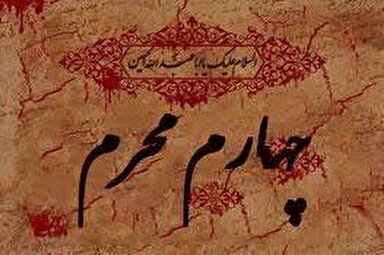 السلام علیک یا ابا عبد الله الحسین
چهارم محرم